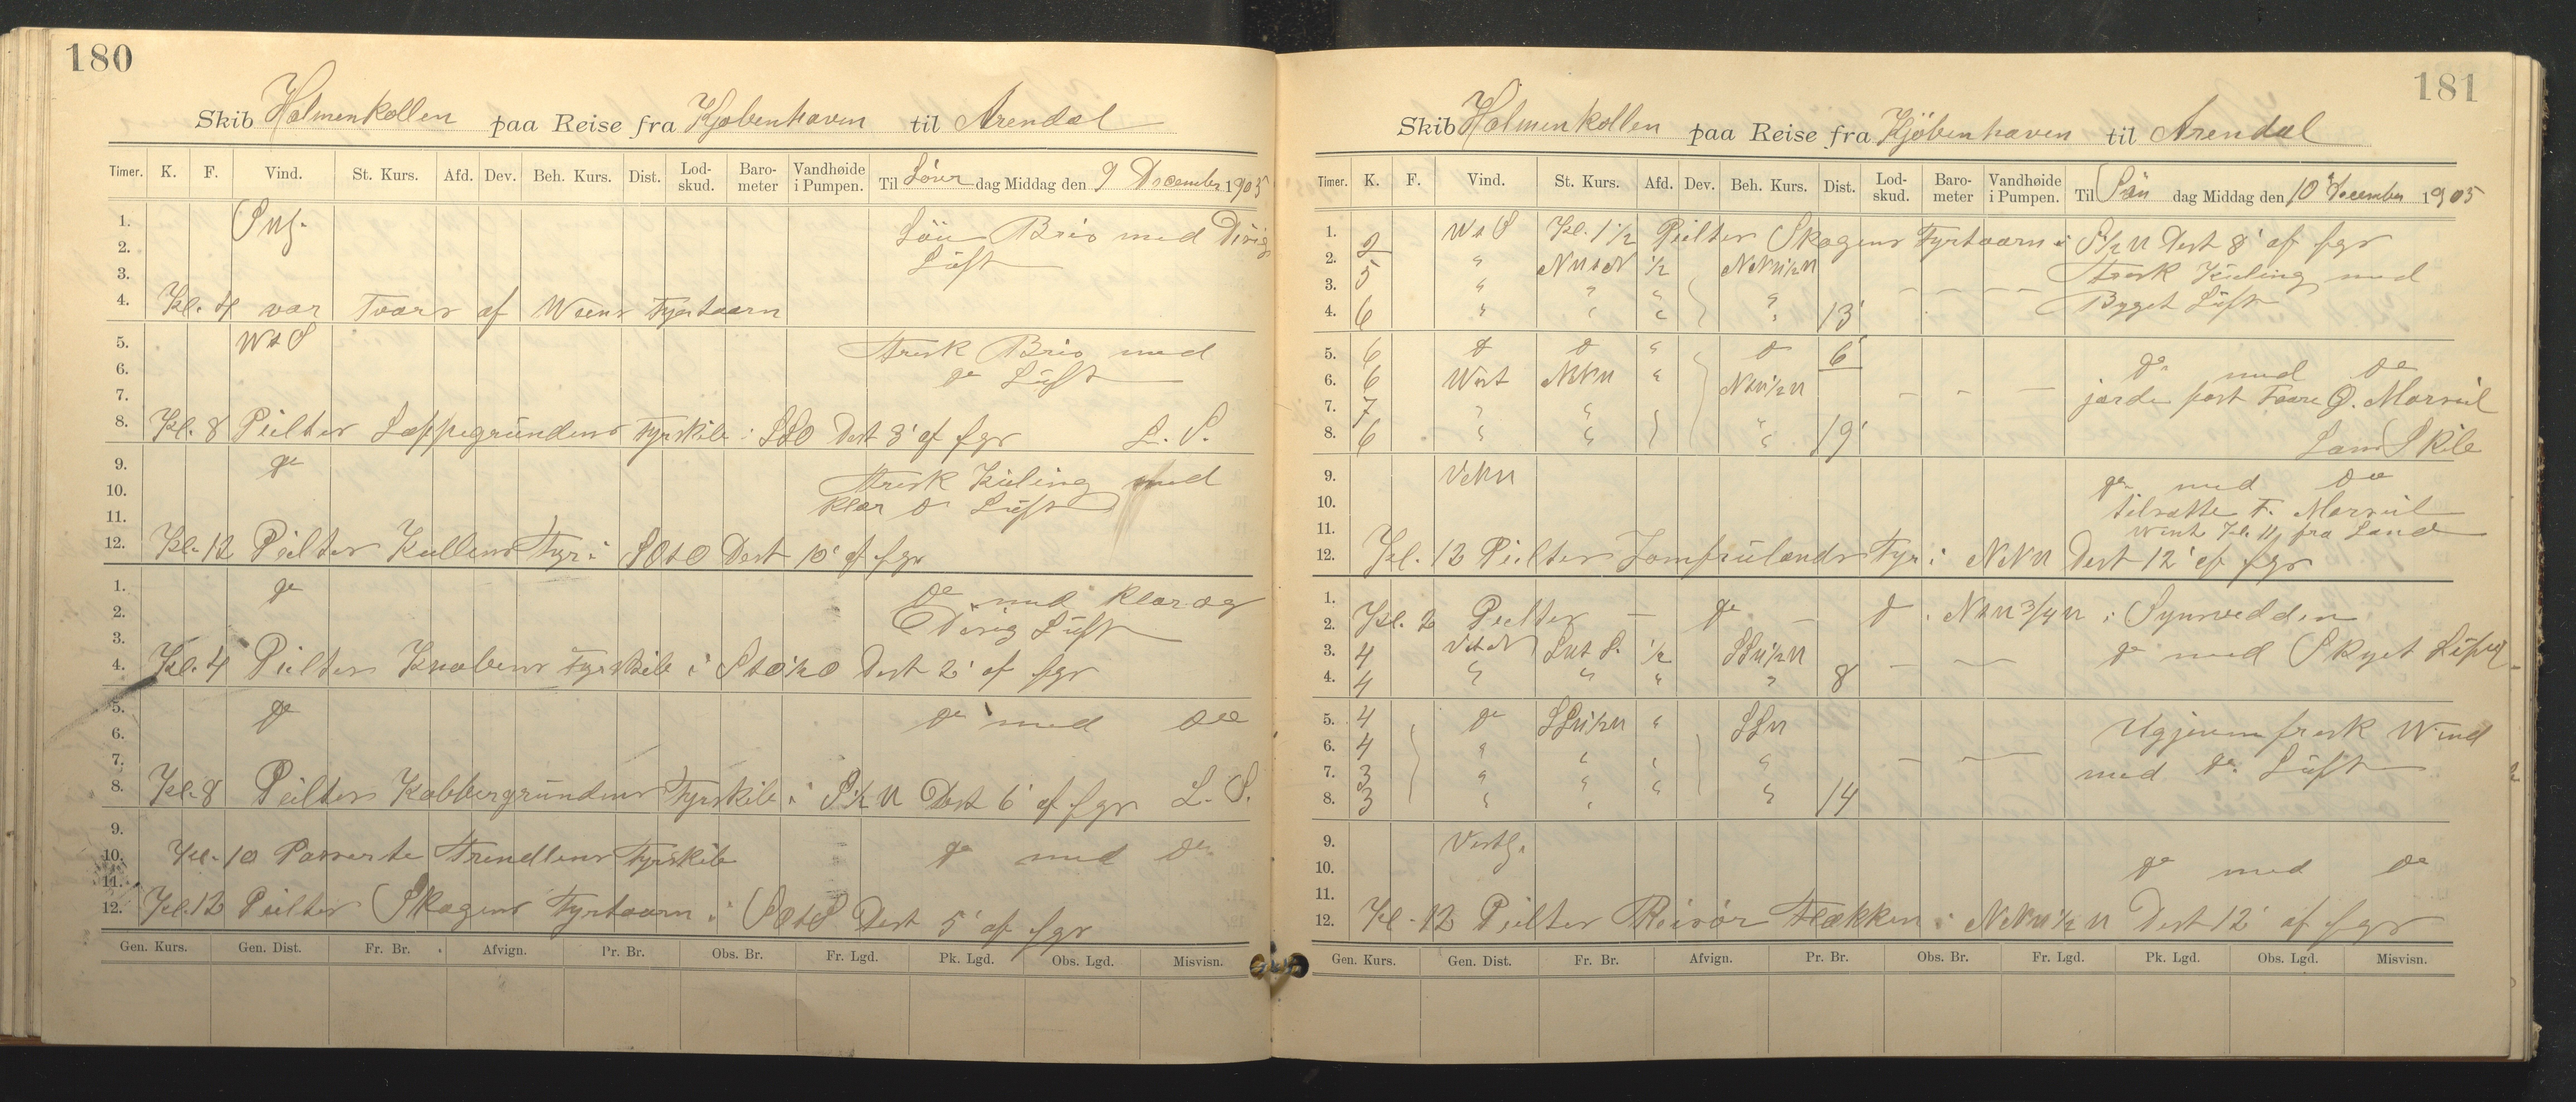 180
Skib Holmenkollen paa Reise fra Kjøbenhaven til Arendal
Timer. K. F. Vind. St. Kurs. Afd. Dev. Beh. Kurs. Dist. Lod-skud. Baro-meter Vandhøide i Pumpen. Til Löver dag Middag den 9 December 1905
1. Löu Bris med Disig
2. Lüft
3.
4. Kl. 4 var Tvars af Fyrtaarn
5. W t S frisk Bris med
6. do Lüft
7.
8. Kl. 8 Peilter Lappegründens Fyrskib i SSO Dist 3' af fgr L. S.
9. do frisk Küling med
10. klar Lüft
11.
12. Kl. 12 Peilter Kullens Fyr i SOtO Dist 10' af fgr
1. do do med klar og
2. Disig Lüft
3.
4. Kl. 4 Peilter Knobens Fyrskib i StO½O Dist 2' af fgr
5. do do med do
6.
7.
8. Kl. 8 Peilter Kobbergründens Fyrskib i S½W Dist 6' af fgr L. S.
9.
10. Kl. 10 Passerte Trindlens Fyrskib do med do
11.
12. Kl. 12 Peilter Skagens Fyrtaarn i SOtS Dist 5' af fgr
Gen. Kurs. Gen. Dist. Fr. Br. Afvign. Pr. Br. Obs. Br. Fr. Lgd. Pk. Lgd. Obs. Lgd. Misvisn.
181
Skib Holmenkollen paa Reise fra Kjöbenhaven til Arendal
Timer. K. F. Vind. St. Kurs. Afd. Dev. Beh. Kurs. Dist. Lod-skud. Baro-meter Vandhøide i Pumpen. Til Sön dag Middag den 10 December 1905
1. 2 W t S Kl. 1½ Peilter Skagens Fyrtaarn i S½W Dist 8' af fgr
2. 5 " NWtN ½ NNW½W frisk Küling med
3. " " " " Bygget Lüft
4. 6 " " " " 13'
5. 6 do do " do 6'
6. 6 West NNW " NtW½W do med do
7. 7 " " " jorde fast
8. 6 " " " 19'
9. VNW do med do
10. tilsatte F. Mersseil
11. Kl. 11 fra Land
12. Kl. 12 Peilter Jomfrülands Fyr i NNW Dist 12' af fgr
1.
2. Kl. 2 Peilter — do — do i NtW¾W i Synvidden
3. 4 VtN SWtS. ½ SSW½W do med Skyet Lüft
4. 4 " " " " 8
5. 4 do SSW½W " SSW Ugjevn frisk Wind
6. 4 " " " med do Lüft
7. 3 " " " "
8. 3 " " " " 14
9. Vestl.
10. do med do
11.
12. Kl. 12 Peilter Risör Flækken i NNW½W Dist 12' af fgr
Gen. Kurs. Gen. Dist. Fr. Br. Afvign. Pr. Br. Obs. Br. Fr. Lgd. Pk. Lgd. Obs. Lgd. Misvisn.